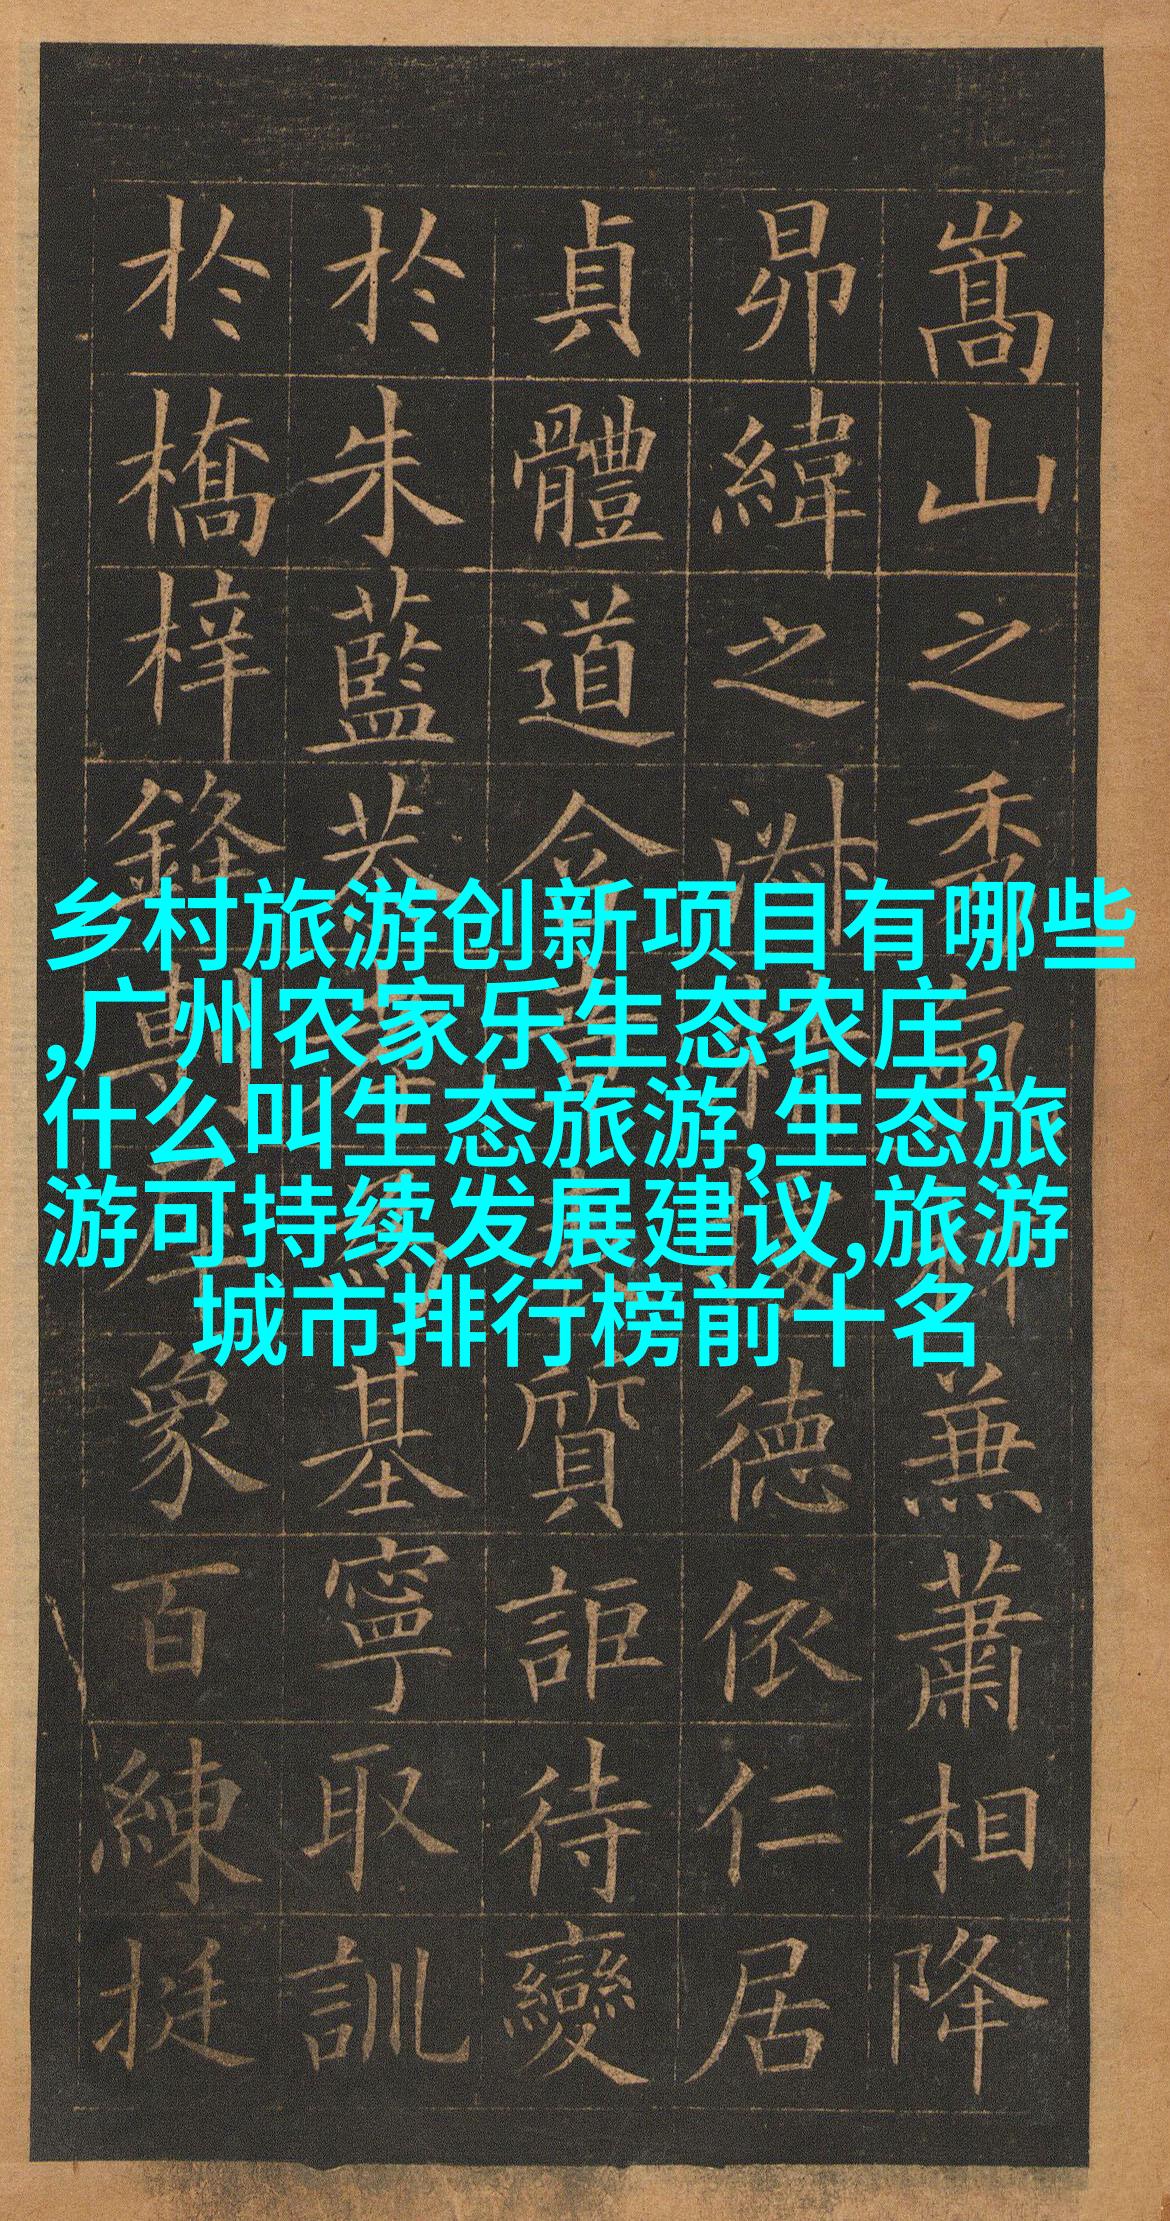 乡村旅游创新项目有哪些
,广州农家乐生态农庄,
什么叫生态旅游,生态旅
游可持续发展建议,旅游
城市排行榜前十名
嵩山之秀氣兼蕭相降
昴緯之淑精德依仁居
貞體道含章質詎待變
於朱藍恭孝為基寧取訓
於橋梓鋒象百練挺